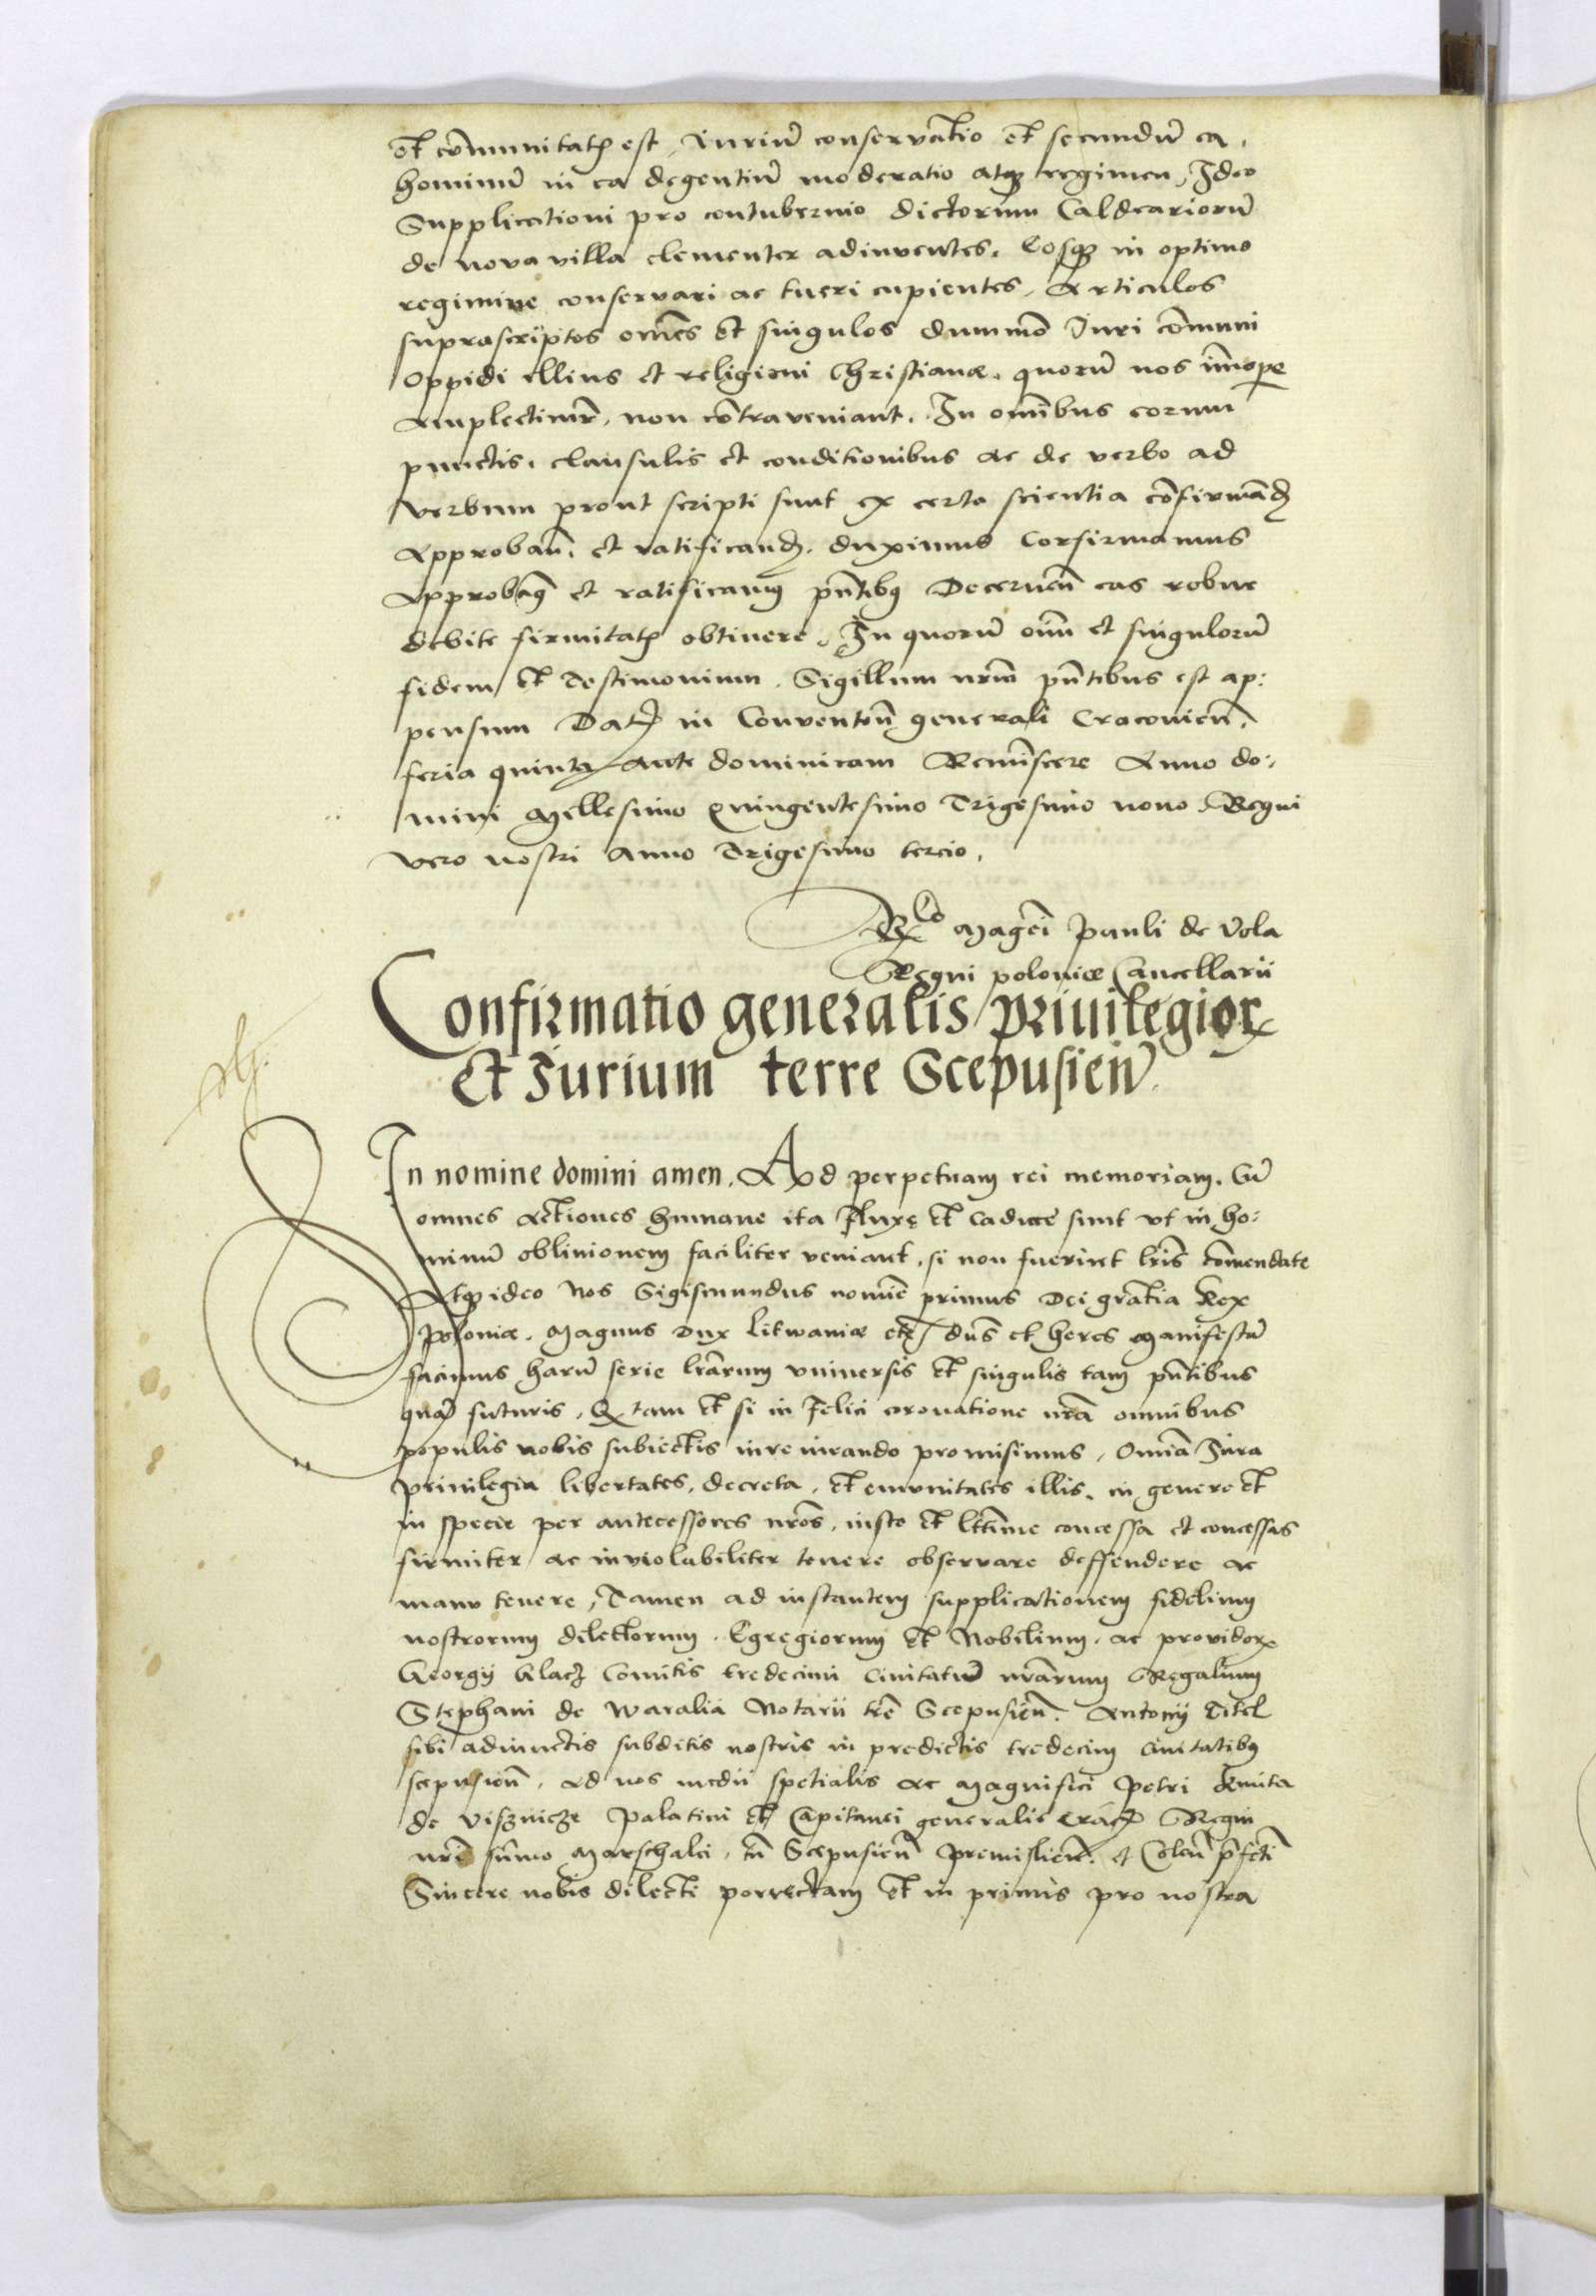 et cõmunitatꝭ est, Juriũ conservatio et secundũ ea,
hominũ in ea degentiũ moderatio atqꝫ regimen, Ideo
Supplicationi pro contubernio dictorum Caldeariorũ
de nova villa clementer adnuentes. Eosqꝫ in optimo
regimine conservari ac tueri cupientes, Articulos
suprascriptos om̃es et singulos dummõ Juri cõmuni
Oppidi illius et religioni Christianæ, quorũ nos
Amplectimr̃, non cõntraveniant. In om̃ibus eorum
punctis, clausulis et conditionibus ac de verbo ad
verbum prout scripti sunt ex certa scientia cõfirmãdꝭ
Approbañ. et ratificandꝭ. duximus Confirmamus
Approbamꝰ et ratificamꝰ pñtibꝰ Decerneñ eas robur
debite firmitatꝭ obtinere. In quorũ oim̃ et singulorũ
fidem et Testimonium. Sigillum nrm̃ pñtibus est ap:
pensum Datꝭ in Conventioñ generali Cracovieñ.
feria quinta ante dominicam Reminiscere Anno do:
mini Millesimo Quingentesimo Trigesimo nono. Regni
vero nostri Anno Trigesimo tercio.
Rᵒ Magcĩ Pauli de Vola
Regni poloniæ Cancellarii
Confirmatio generalis privilegiorꝝ
Et Jurium terre Scepusieñ.
In nomine domini amen. Ad perpetuam rei memoriam. Cũ
omnes Actiones humane ita fluxe et caduce sunt vt in ho:
minũ oblivionem faciliter veniant, si non fuerint lr̃is cõmendate
Atqꝫ ideo Nos Sigismundus nomĩe primus Dei gratia Rex
Poloniæ. Magnus Dux Litwaniæ etc̃ dñs et heres Manifestũ
facimus harũ serie lr̃arum vniversis et singulis tam pñtibus
quaꝫ futuris, Qꝫ tam et si in felici coronatione nrã omnibus
populis nobis subiectis iureiurando promisimus, Omĩa Jura
privilegia libertates, decreta, et emunitates illis, in genere et
in specie per antecessores nros̃, iuste et lt̃ime concessa et concessas
firmiter ac inviolabiliter tenere observare deffendere ac
manu tenere, Tamen ad instantem supplicationem fidelium
nostrorum dilectorum. Egregiorum et Nobilium. ac providorꝝ
Georgij Comitis tredecim Civitatũ nr̃arum Regalium
Stephani de Waralia Notarii tr̃e Scepusieñ. Antonij Titel
sibi adiunctis subditis nostris in predictis tredecim Civitatibꝰ
scepusieñ. Ad nos medii spetialis ac Magnifici Petri Kmita
de Visznicze Palatini et Capitanei generalis Cracꝭ Regni
nrĩ sũmo Marschalci, tñ Scepusieñ Premislieñ. et Coleñ p̃fectĩ
Sincere nobis dilecti porrectam et in primis pro nostra